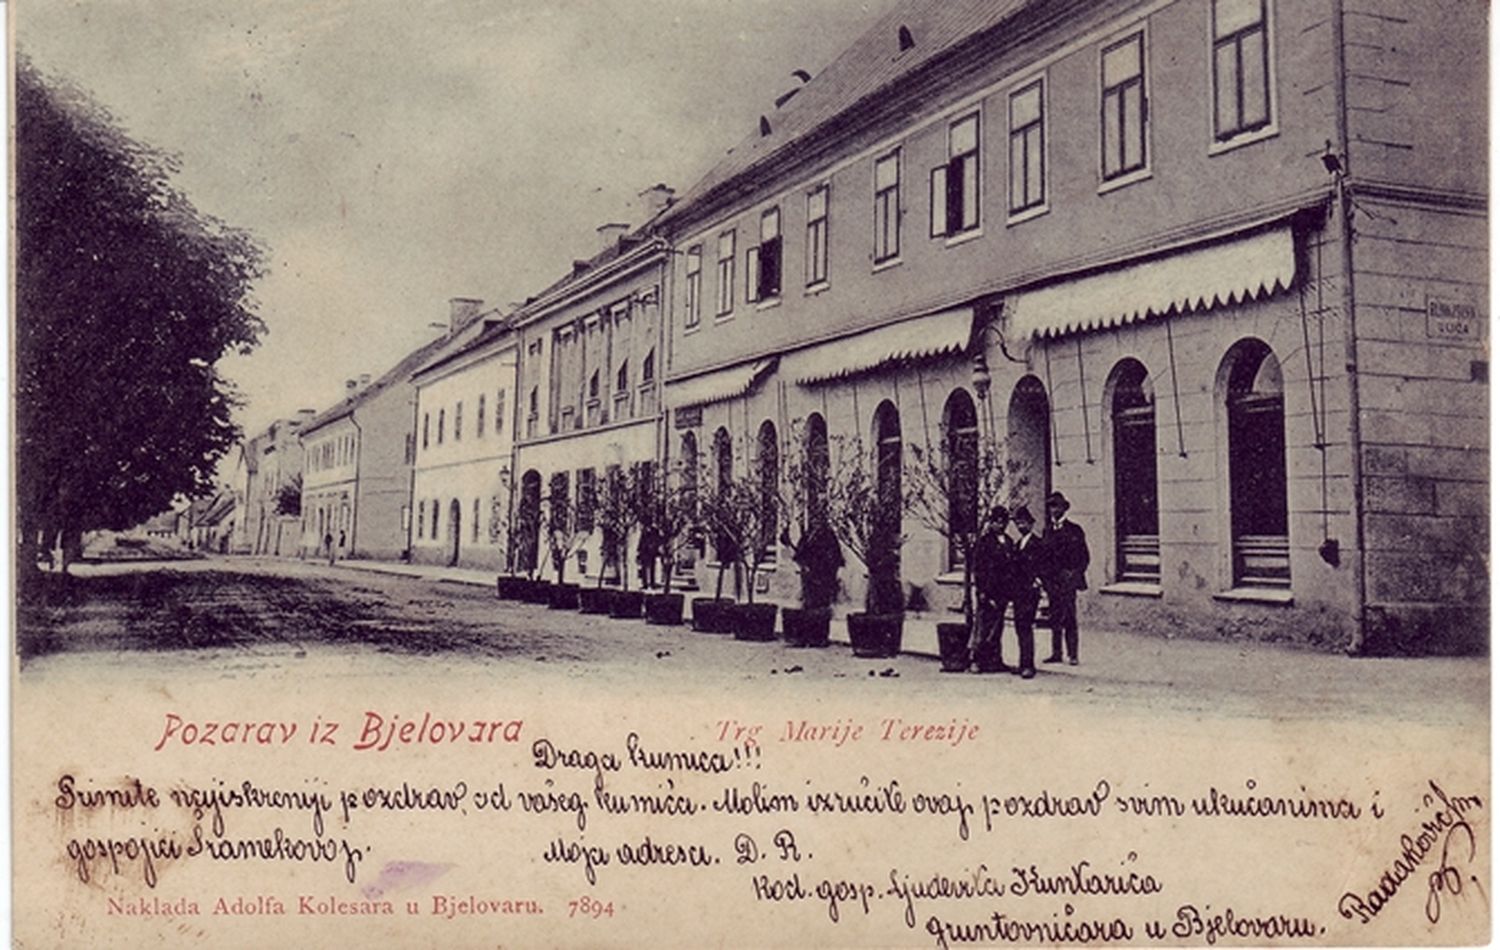 ULICA
Pozarav iz Bjelovara
Trg Marije Terezije
Draga kumica!!!
Primite najiskreniji pozdrav od vašeg kumića. Molim izručite ovaj pozdrav svim ukućanima i
gospojici Šramekovoj.
Moja adresa. D. R.
kod. gosp. Ljudevita Kuntarića
gruntovničara u Bjelovaru.
Radaković
Naklada Adolfa Kolesara u Bjelovaru. 7894